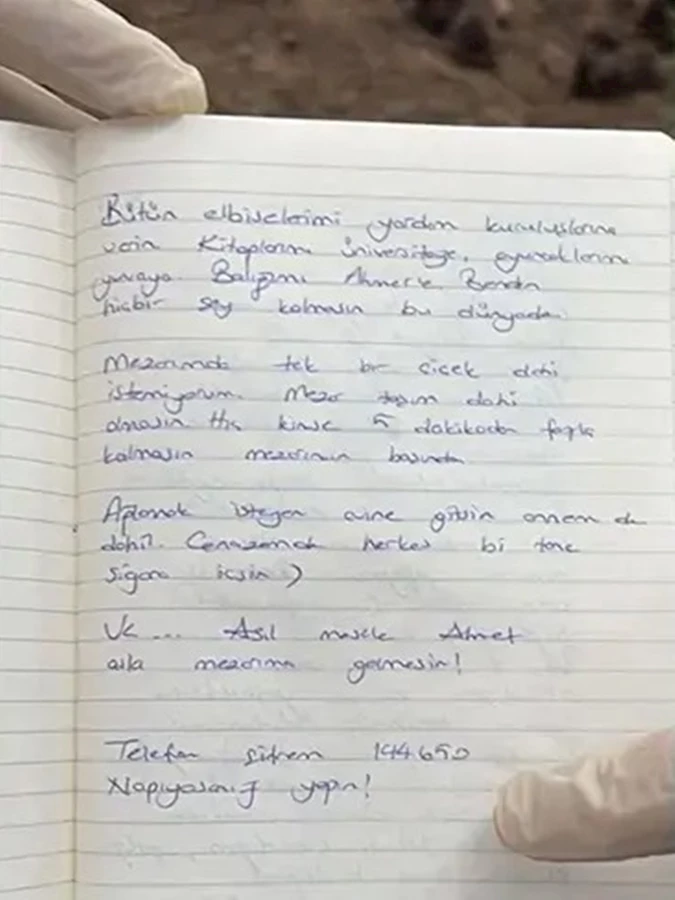 Bütün elbiselerimi yardım kuruluşlarına
verin Kitaplarımı üniversiteye, oyuncaklarımı
yuvaya Balığımı Ahmet'e Benden
hiçbir şey kalmasın bu dünyada.
Mezarımda tek bir çiçek dahi
istemiyorum. Mezar taşım dahi
olmasın Hiç kimse 5 dakikadan fazla
kalmasın mezarımın başında
Ağlamak isteyen evine gitsin annem de
dahil. Cenazemde herkes bi tane
sigara içsin )
Ve ... Asıl mesele Ahmet
asla mezarıma gelmesin!
Telefon şifrem 144650
Napıyosanız yapın!